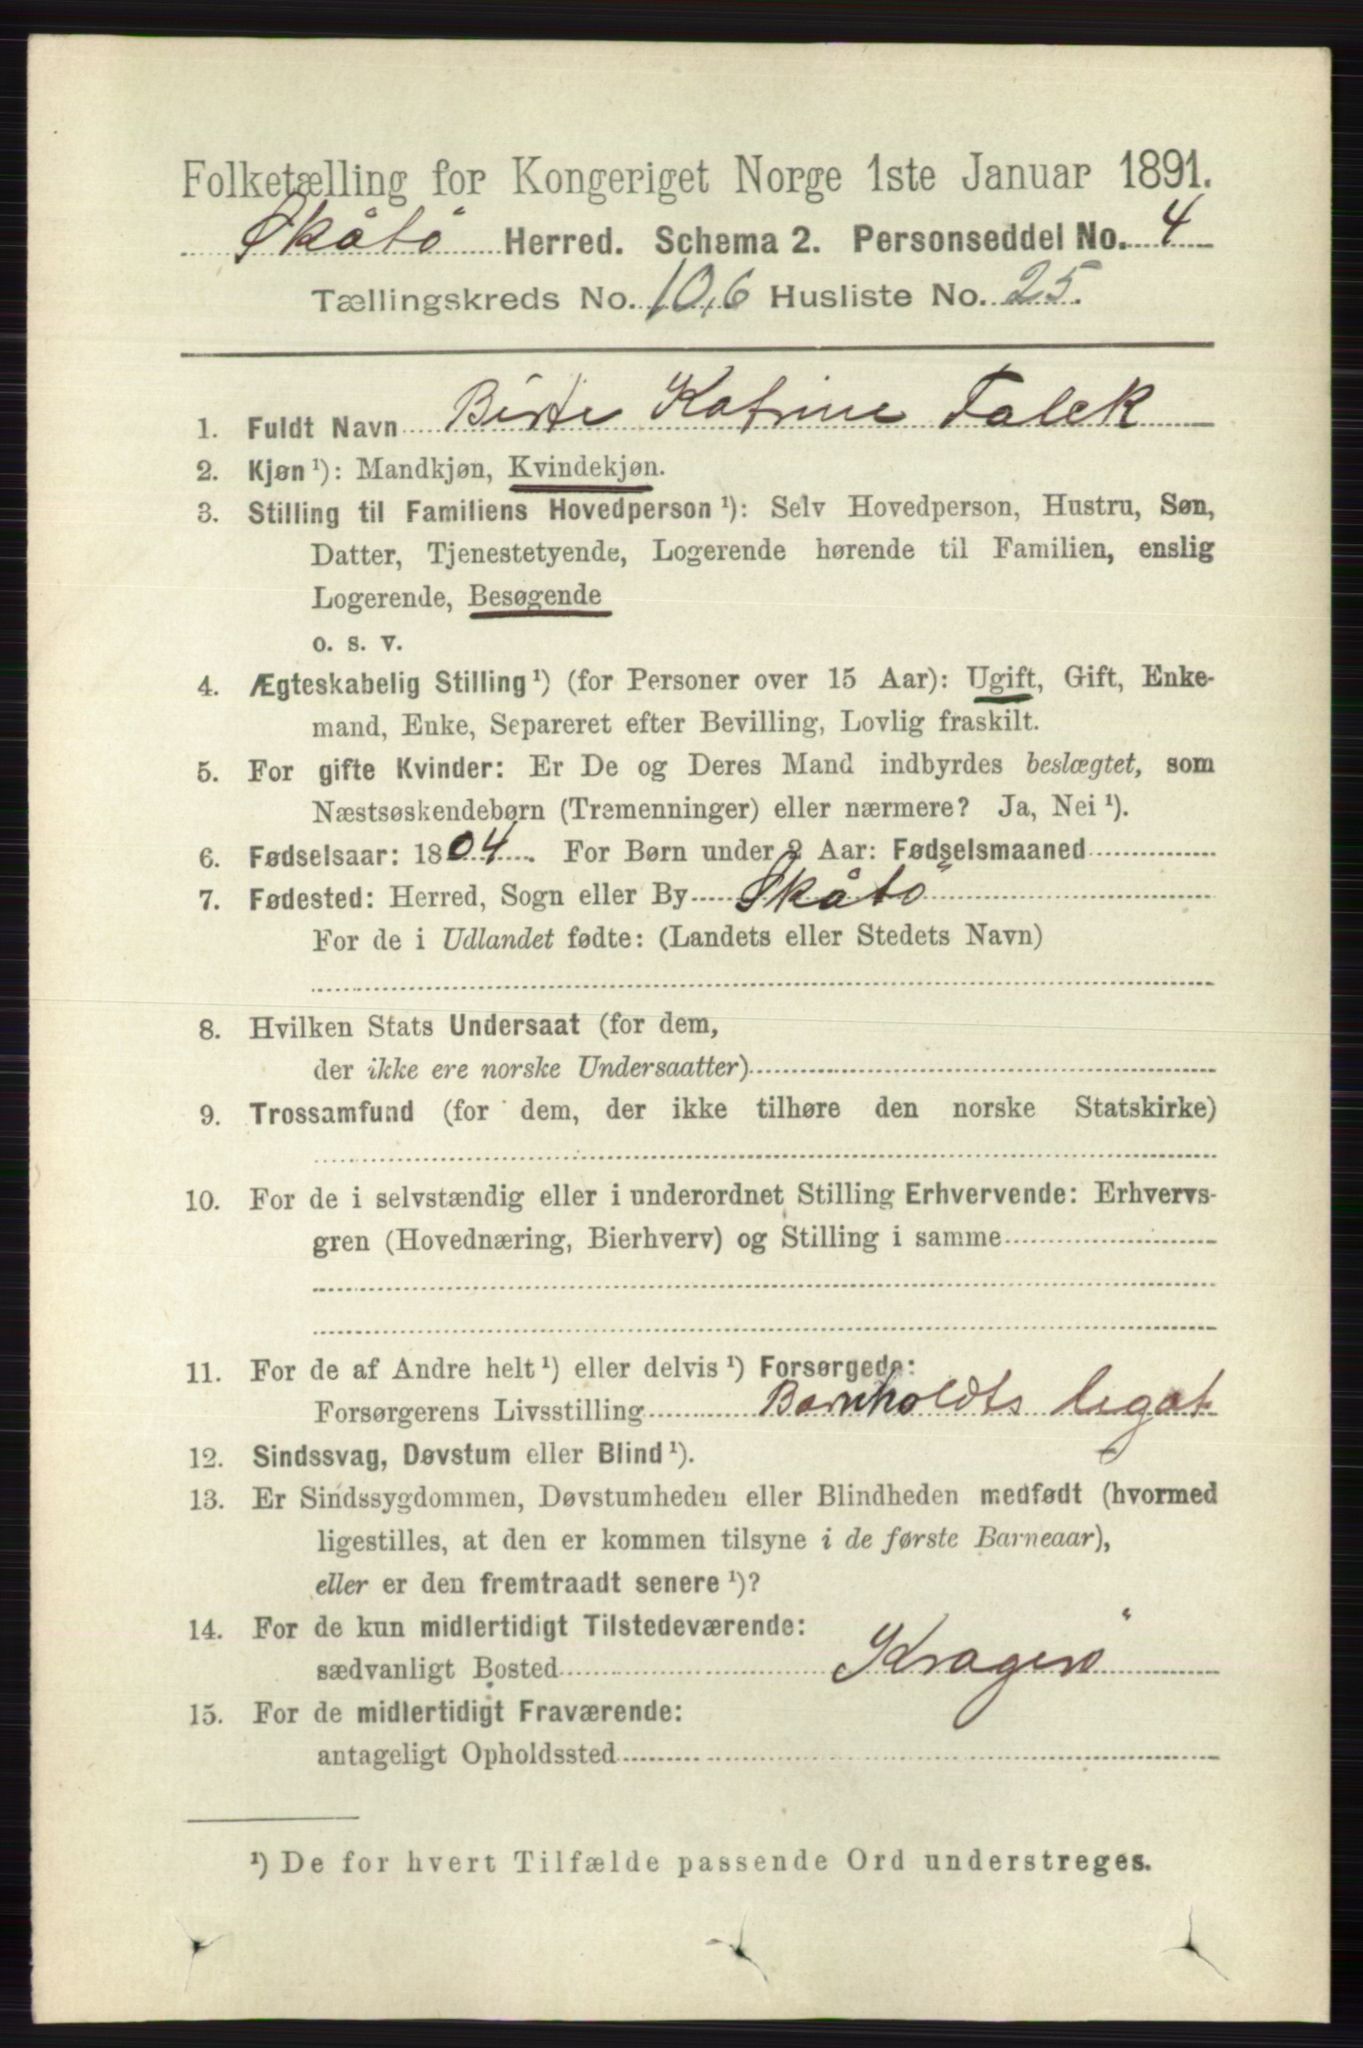 Folketælling for Kongeriget Norge 1ste Januar 1891.
Skåtö Herred. Schema 2. Personseddel No. 4
Tællingskreds No. 10,6 Husliste No. 25.
1. Fuldt Navn Birte Katrine Falck
2. Kjøn ¹): Mandkjøn, Kvindekjøn.
3. Stilling til Familiens Hovedperson ¹): Selv Hovedperson, Hustru, Søn,
Datter, Tjenestetyende, Logerende hørende til Familien, enslig
Logerende, Besøgende
o. s. v.
4. Ægteskabelig Stilling ¹) (for Personer over 15 Aar): Ugift, Gift, Enke-
mand, Enke, Separeret efter Bevilling, Lovlig fraskilt.
5. For gifte Kvinder: Er De og Deres Mand indbyrdes beslægtet, som
Næstsøskendebørn (Tremenninger) eller nærmere? Ja, Nei ¹).
6. Fødselsaar: 1804. For Børn under 2 Aar: Fødselsmaaned
7. Fødested: Herred, Sogn eller By Skåtö
For de i Udlandet fødte: (Landets eller Stedets Navn)
8. Hvilken Stats Undersaat (for dem,
der ikke ere norske Undersaatter)
9. Trossamfund (for dem, der ikke tilhøre den norske Statskirke)
10. For de i selvstændig eller i underordnet Stilling Erhvervende: Erhvervs-
gren (Hovednæring, Bierhverv) og Stilling i samme
11. For de af Andre helt ¹) eller delvis ¹) Forsørgede:
Forsørgerens Livsstilling Barnholdts legat
12. Sindssvag, Døvstum eller Blind ¹).
13. Er Sindssygdommen, Døvstumheden eller Blindheden medfødt (hvormed
ligestilles, at den er kommen tilsyne i de første Barneaar),
eller er den fremtraadt senere ¹)?
14. For de kun midlertidigt Tilstedeværende:
sædvanligt Bosted Kragerö
15. For de midlertidigt Fraværende:
antageligt Opholdssted
¹) De for hvert Tilfælde passende Ord understreges.